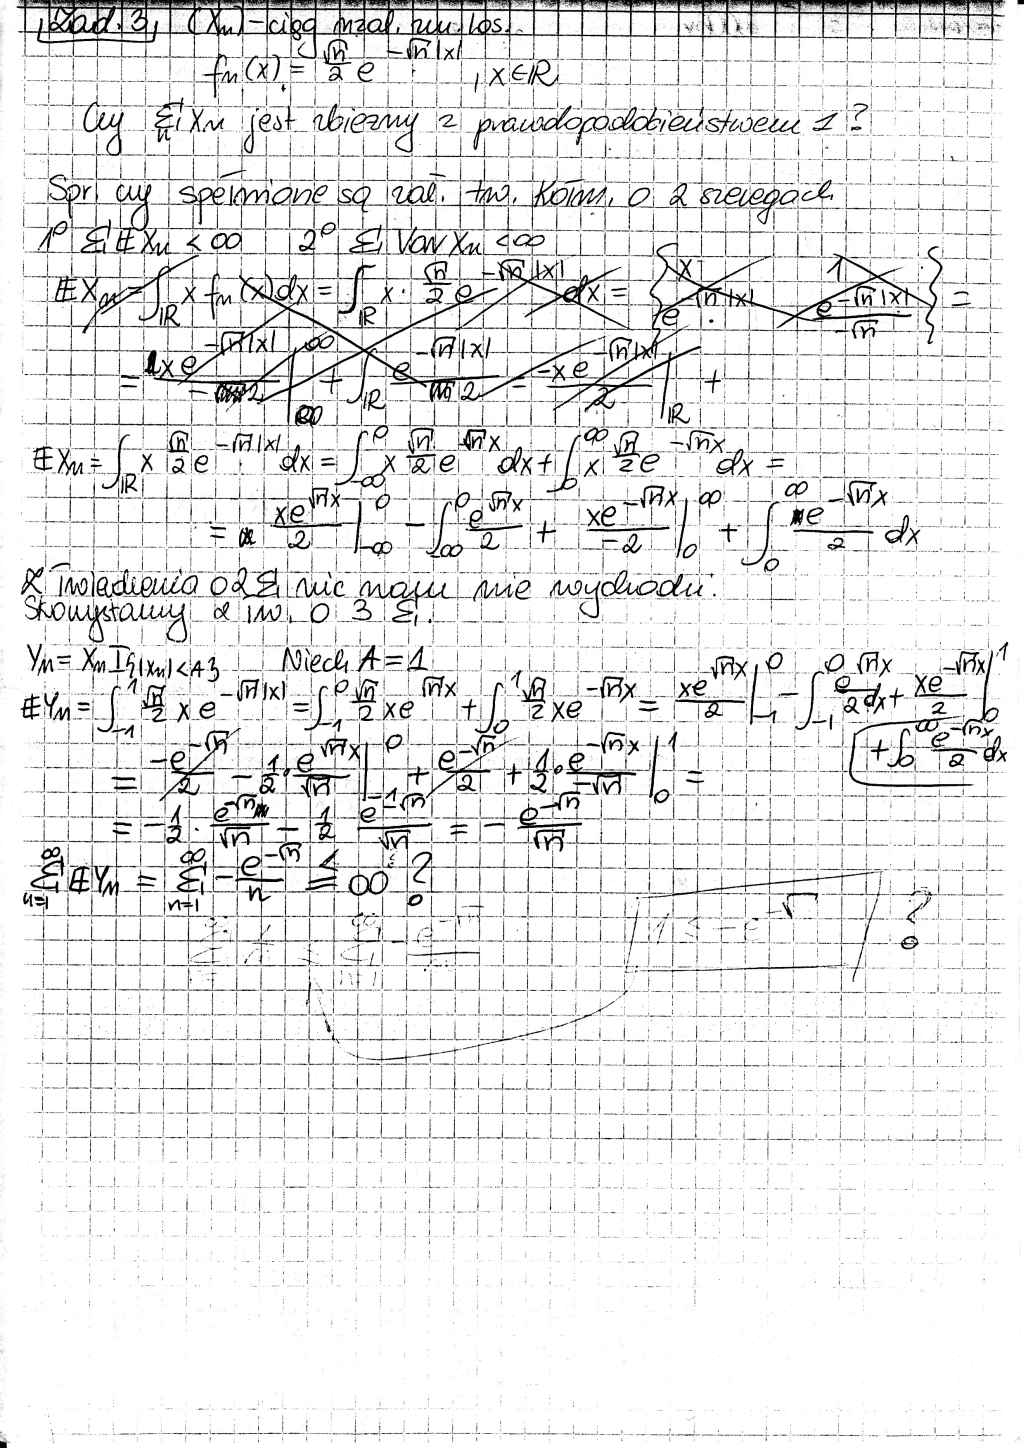 Zad. 3. (Xn) - ciąg nzal. zm. los.
fn(x) = √n/2 e^{-√n|x|} , x∈ℝ
Czy Σ_n Xn jest zbieżny z prawdopodobieństwem 1?
Spr. czy spełnione są zał. tw. Kołm. o 2 szeregach
1° Σ 𝔼Xn < ∞ 2° Σ Var Xn < ∞
𝔼Xn = ∫_ℝ x fn(x)dx = ∫_ℝ x · √n/2 e^{-√n|x|} dx = { x 1 e^{-√n|x|} e^{-√n|x|}/-√n } =
𝔼Xn = ∫_ℝ x √n/2 e^{-√n|x|} dx = ∫_{-∞}^0 x √n/2 e^{√n x} dx + ∫_0^∞ x √n/2 e^{-√n x} dx =
= xe^{√n x}/2 |_{-∞}^0 - ∫_{-∞}^0 e^{√n x}/2 + xe^{-√n x}/-2 |_0^∞ + ∫_0^∞ e^{-√n x}/2 dx
Z twierdzenia o 2 Σ nic nam nie wychodzi.
Skorzystamy z tw. o 3 Σ.
Yn = Xn I{|Xn|<A} Niech A = 1
𝔼Yn = ∫_{-1}^1 √n/2 x e^{-√n|x|} = ∫_{-1}^0 √n/2 xe^{√n x} + ∫_0^1 √n/2 xe^{-√n x} = xe^{√n x}/2 |_{-1}^0 - ∫_{-1}^0 e^{√n x}/2 dx + xe^{-√n x}/2 |_0^1
+ ∫_0^∞ e^{-√n x}/2 dx
= -e^{-√n}/2 - 1/2 · e^{√n x}/√n |^0 + e^{-√n}/2 + 1/2 · e^{-√n x}/-√n |_0^1 =
= -1/2 · e^{-√n}/√n - 1/2 e^{-1√n}/√n = - e^{-√n}/√n
Σ_{n=1}^∞ 𝔼Yn = Σ_{n=1}^∞ - e^{-√n}/n ≤ ∞ ?
?